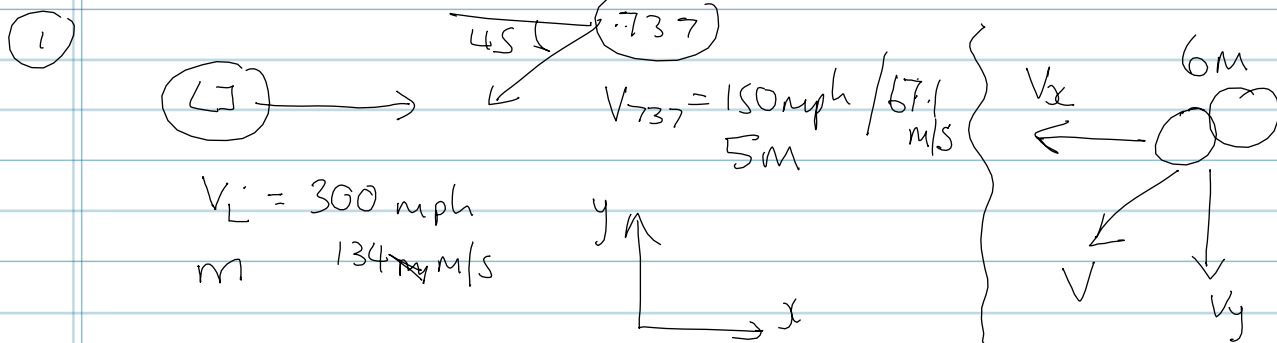 1
45
737
LJ
V737 = 150 mph / 67.1 m/s
5m
VL = 300 mph
m 134 m/s
y
x
6m
Vx
V
Vy